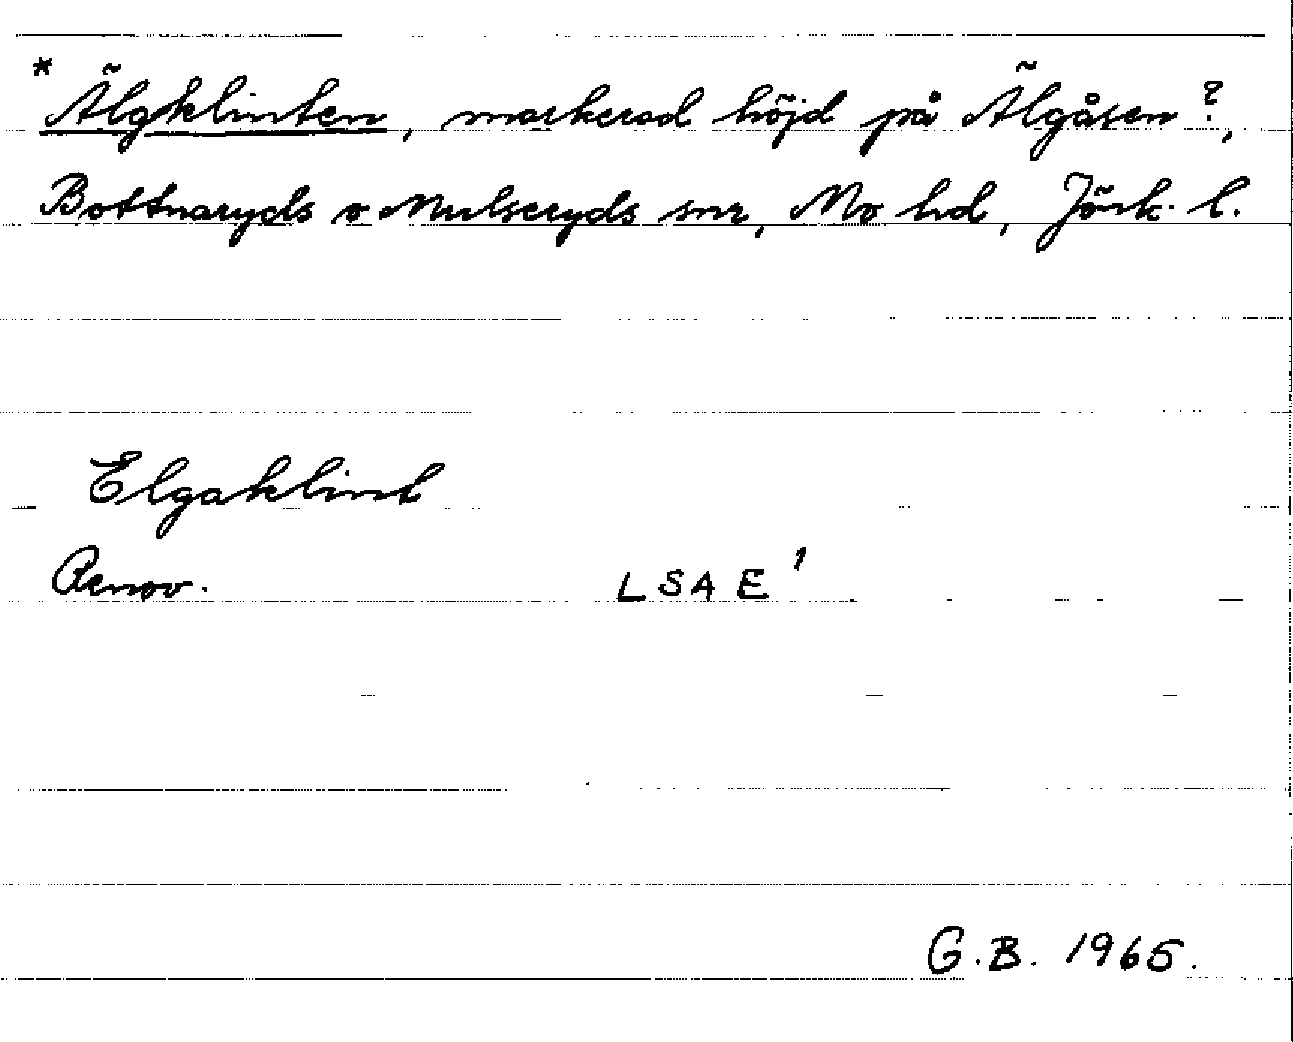 *Älgklinten, markerad höjd på Älgåsen?,
Bottnaryds o Mulseryds snr, Mo hd, Jönk. l.
Elgaklint
Renov. LSA E'
G.B. 1965.